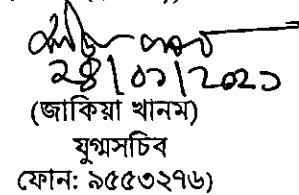 ২৪|০১|২০২১
(জাকিয়া খানম)
যুগ্মসচিব
ফোন: ৯৫৫৩২৭৬)